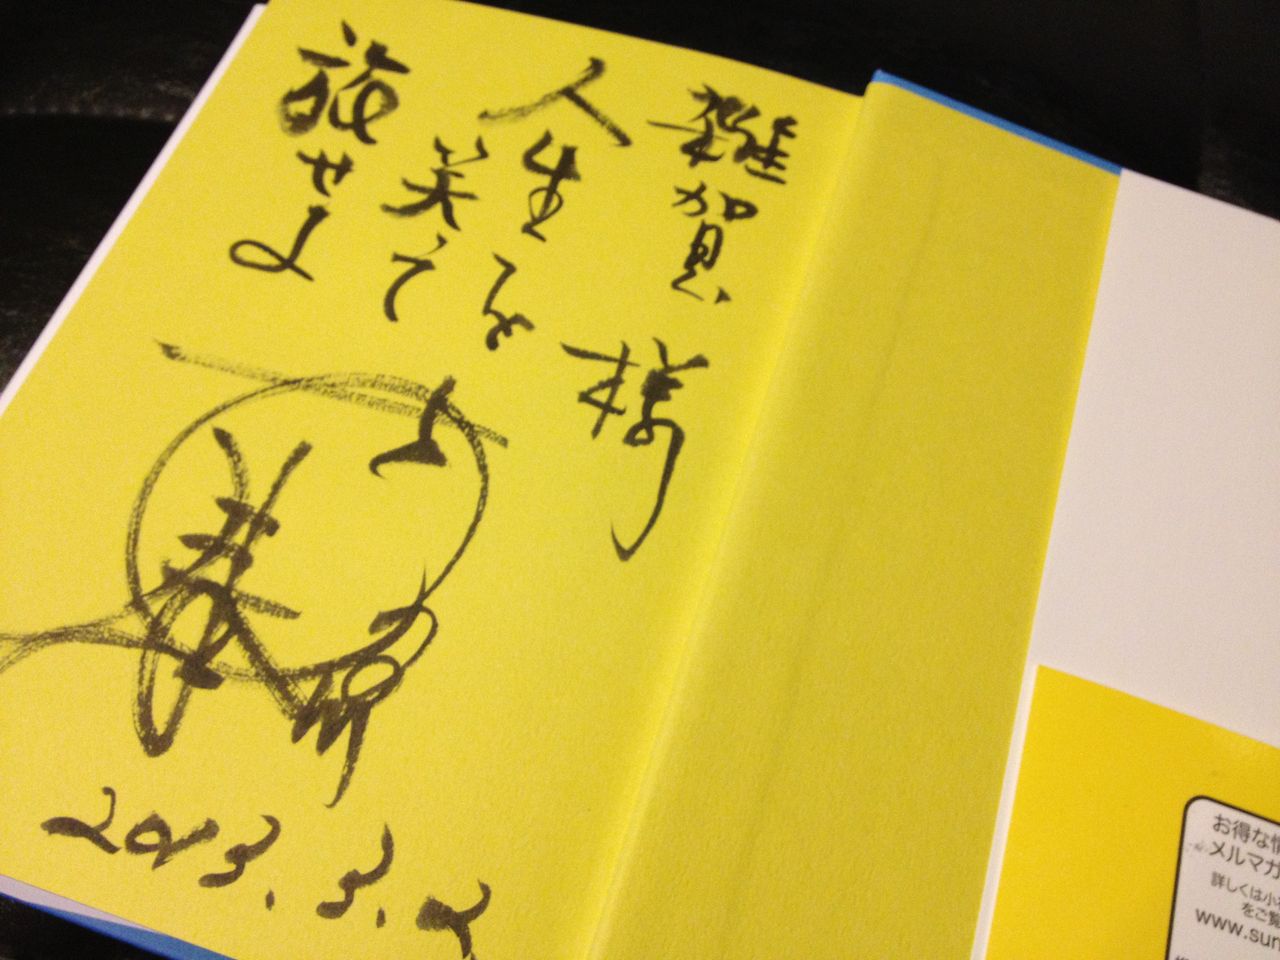 雜賀様
人生を
笑って
旅せよ
2013.3.2
お得な情
メルマガ
詳しくは小
をご覧
www.sun